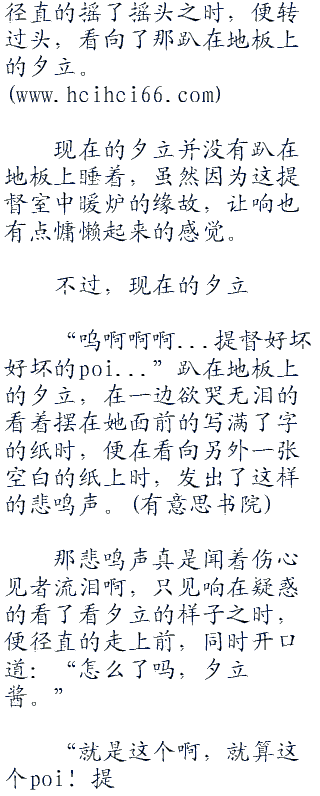 径直的摇了摇头之时，便转
过头，看向了那趴在地板上
的夕立。
(www.hcihci66.com)
现在的夕立并没有趴在
地板上睡着，虽然因为这提
督室中暖炉的缘故，让响也
有点慵懒起来的感觉。
不过，现在的夕立
“呜啊啊啊...提督好坏
好坏的poi...”趴在地板上
的夕立，在一边欲哭无泪的
看着摆在她面前的写满了字
的纸时，便在看向另外一张
空白的纸上时，发出了这样
的悲鸣声。(有意思书院)
那悲鸣声真是闻着伤心
见者流泪啊，只见响在疑惑
的看了看夕立的样子之时，
便径直的走上前，同时开口
道：“怎么了吗，夕立
酱。”
“就是这个啊，就算这
个poi！提